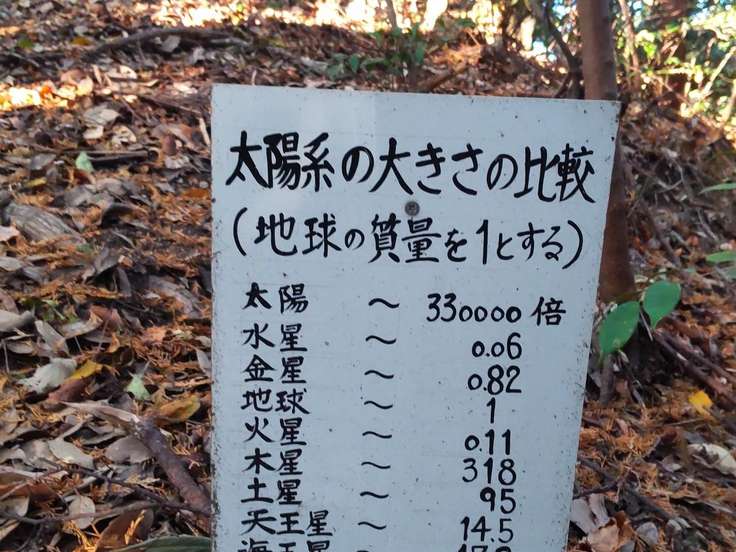 太陽系の大きさの比較
(地球の質量を1とする)
太陽 ～ 330000倍
水星 ～ 0.06
金星 ～ 0.82
地球 ～ 1
火星 ～ 0.11
木星 ～ 318
土星 ～ 95
天王星 ～ 14.5
海王星 ～